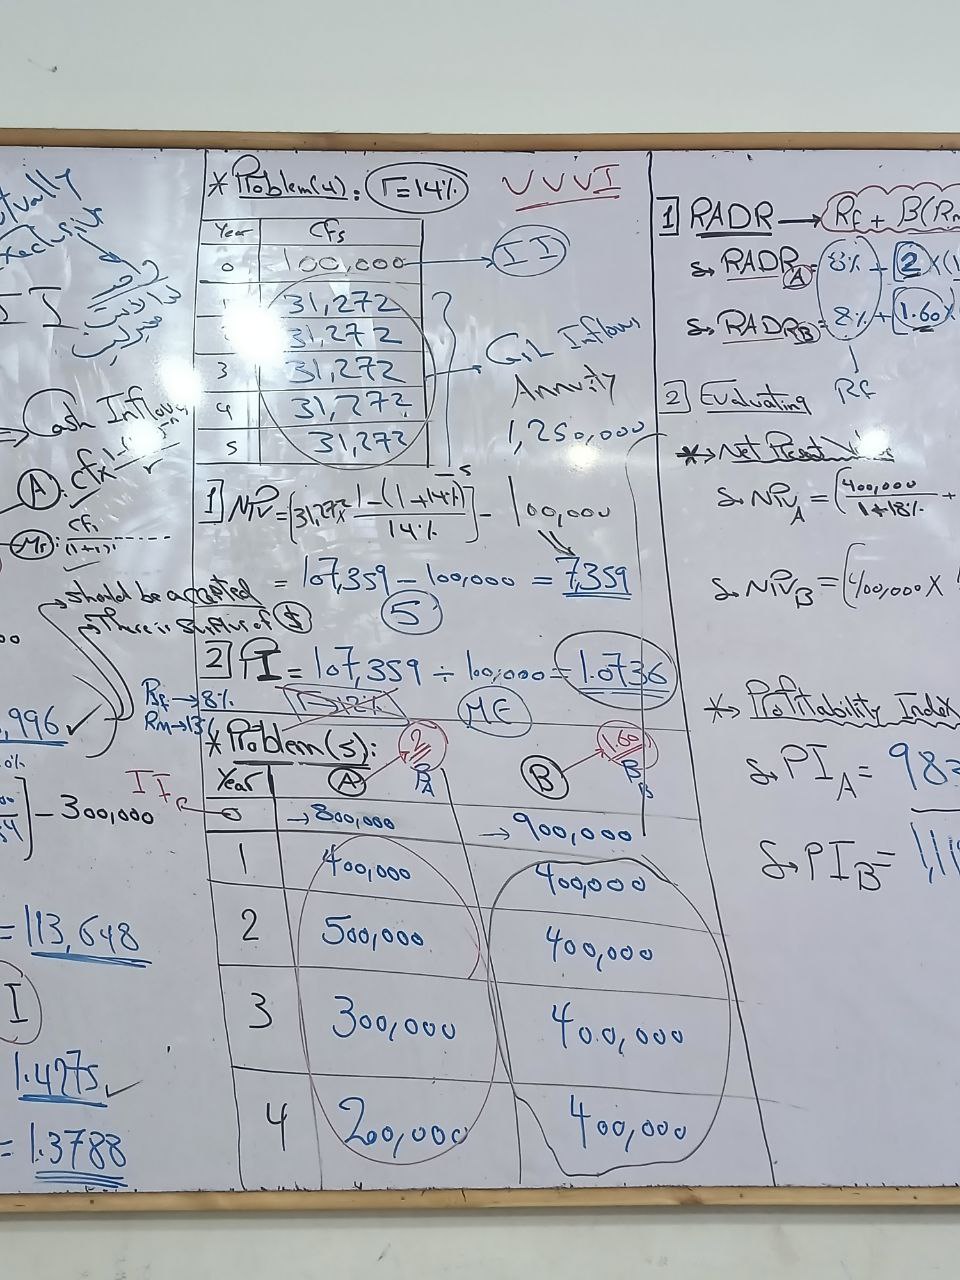 Mutually
Exclusive
I I
⇒ Cash Inflows
A: CFx
r
Mr: CF1
(1+r)1 ------
should be accepted
There is Surplus of $
,996 ✓
] - 300,000
= 113,648
I
1.4275 ✓
= 1.3788
* Problem(4): r=14%
VVVI
Year CFs
0 100,000 → II
1 31,272
2 31,272
3 31,272
4 31,272
5 31,272
Cash Inflows
Annuity
1,250,000
1] NPV = [31,272 x 1-(1+14%)-5 / 14%] - 100,000
= 107,359 - 100,000 = 7,359
5
2] PI = 107,359 ÷ 100,000 = 1.0736
RF → 8%
Rm → 13%
r=12%
ME
* Problem(5):
2
1.60
Year A βA B βB
II
0 → 800,000 → 900,000
1 400,000 400,000
2 500,000 400,000
3 300,000 400,000
4 200,000 400,000
1] RADR → RF + β(Rm
RADR A = 8% + 2 x (1
RADR B = 8% + 1.60 x
RF
2] Evaluating
* Net Present
NPV A = (400,000 / 1+18% +
NPV B = (400,000 x
* Profitability Index
PI A = 98
PI B = 1,1